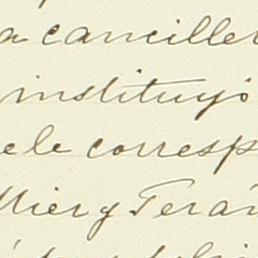 a canciller
instituyó
ele corresp
Mier y Terán